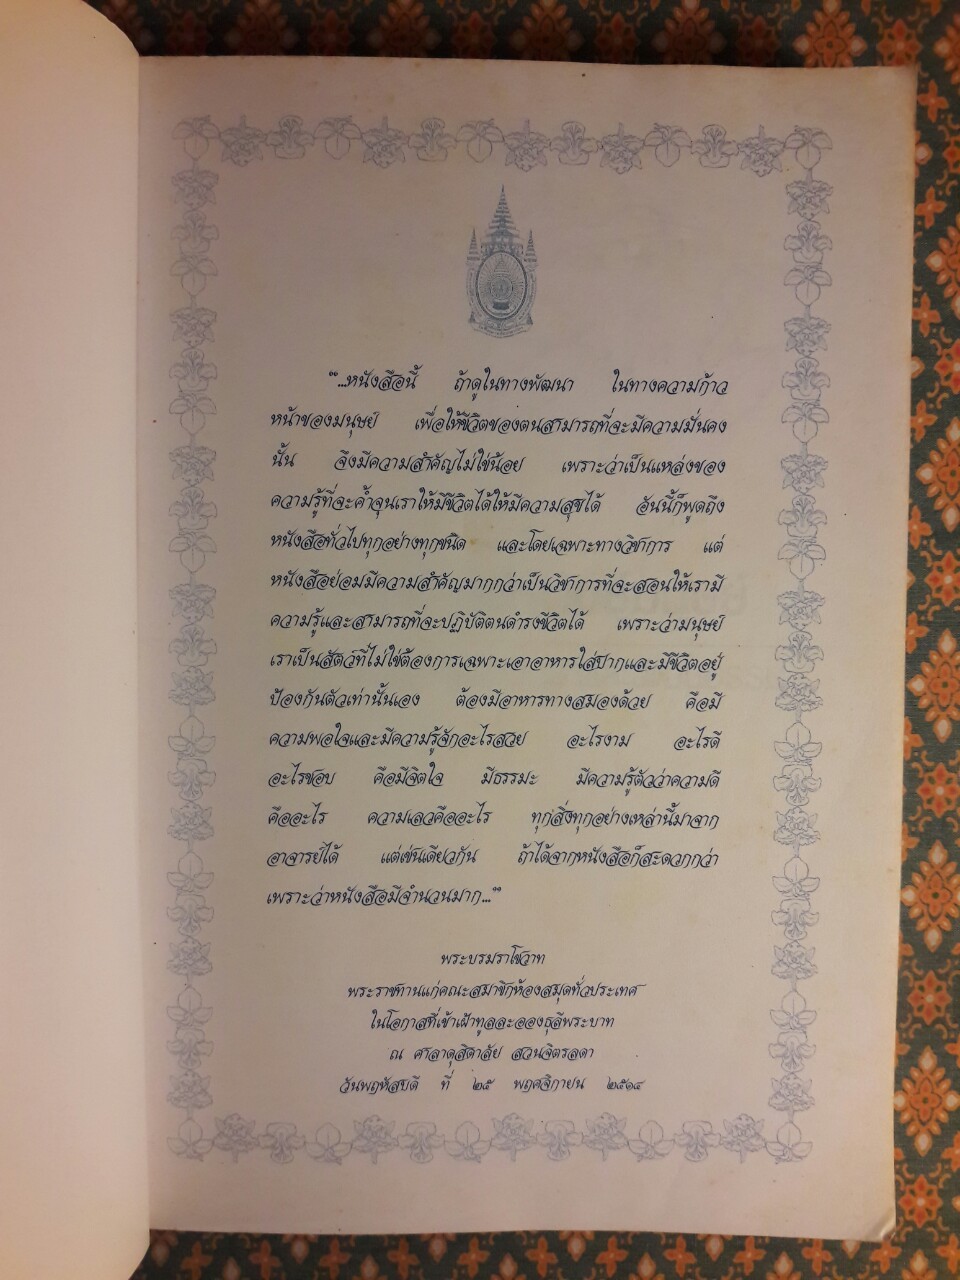 "...หนังสือนี้ ถ้าดูในทางพัฒนา ในทางความก้าว
หน้าของมนุษย์ เพื่อให้ชีวิตของตนสามารถที่จะมีความมั่นคง
นั้น จึงมีความสำคัญไม่ใช่น้อย เพราะว่าเป็นแหล่งของ
ความรู้ที่จะค้ำจุนเราให้มีชีวิตได้ให้มีความสุขได้ อันนี้ก็พูดถึง
หนังสือทั่วไปทุกอย่างทุกชนิด และโดยเฉพาะทางวิชาการ แต่
หนังสือย่อมมีความสำคัญมากกว่าเป็นวิชาการที่จะสอนให้เรามี
ความรู้และสามารถที่จะปฏิบัติตนดำรงชีวิตได้ เพราะว่ามนุษย์
เราเป็นสัตว์ที่ไม่ใช่ต้องการเฉพาะเอาอาหารใส่ปากและมีชีวิตอยู่
ป้องกันตัวเท่านั้นเอง ต้องมีอาหารทางสมองด้วย คือมี
ความพอใจและมีความรู้จักอะไรสวย อะไรงาม อะไรดี
อะไรชอบ คือมีจิตใจ มีธรรมะ มีความรู้ตัวว่าความดี
คืออะไร ความเลวคืออะไร ทุกสิ่งทุกอย่างเหล่านี้มาจาก
อาจารย์ได้ แต่เช่นเดียวกัน ถ้าได้จากหนังสือก็สะดวกกว่า
เพราะว่าหนังสือมีจำนวนมาก..."
พระบรมราโชวาท
พระราชทานแก่คณะสมาชิกห้องสมุดทั่วประเทศ
ในโอกาสที่เข้าเฝ้าทูลละอองธุลีพระบาท
ณ ศาลาดุสิดาลัย สวนจิตรลดา
วันพฤหัสบดี ที่ ๒๕ พฤศจิกายน ๒๕๑๔